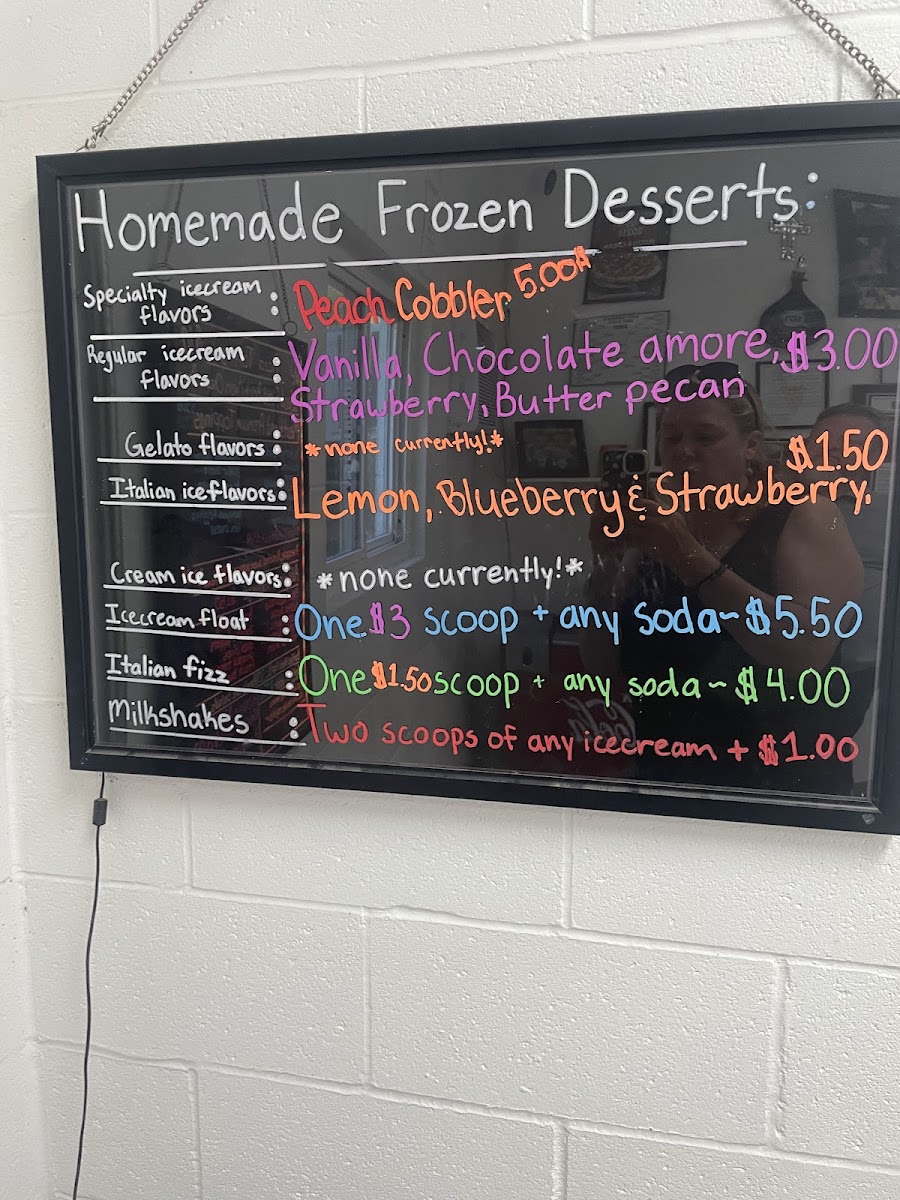 Homemade Frozen Desserts:
Specialty icecream flavors : Peach Cobbler 5.00$
Regular icecream flavors : Vanilla, Chocolate amore, $3.00
Strawberry, Butter pecan
Gelato flavors : *none currently!*
$1.50
Italian ice flavors: Lemon, Blueberry & Strawberry.
Cream ice flavors: *none currently!*
Icecream float : One $3 scoop + any soda~ $5.50
Italian fizz : One $1.50 scoop + any soda ~ $4.00
Milkshakes : Two scoops of any icecream + $1.00